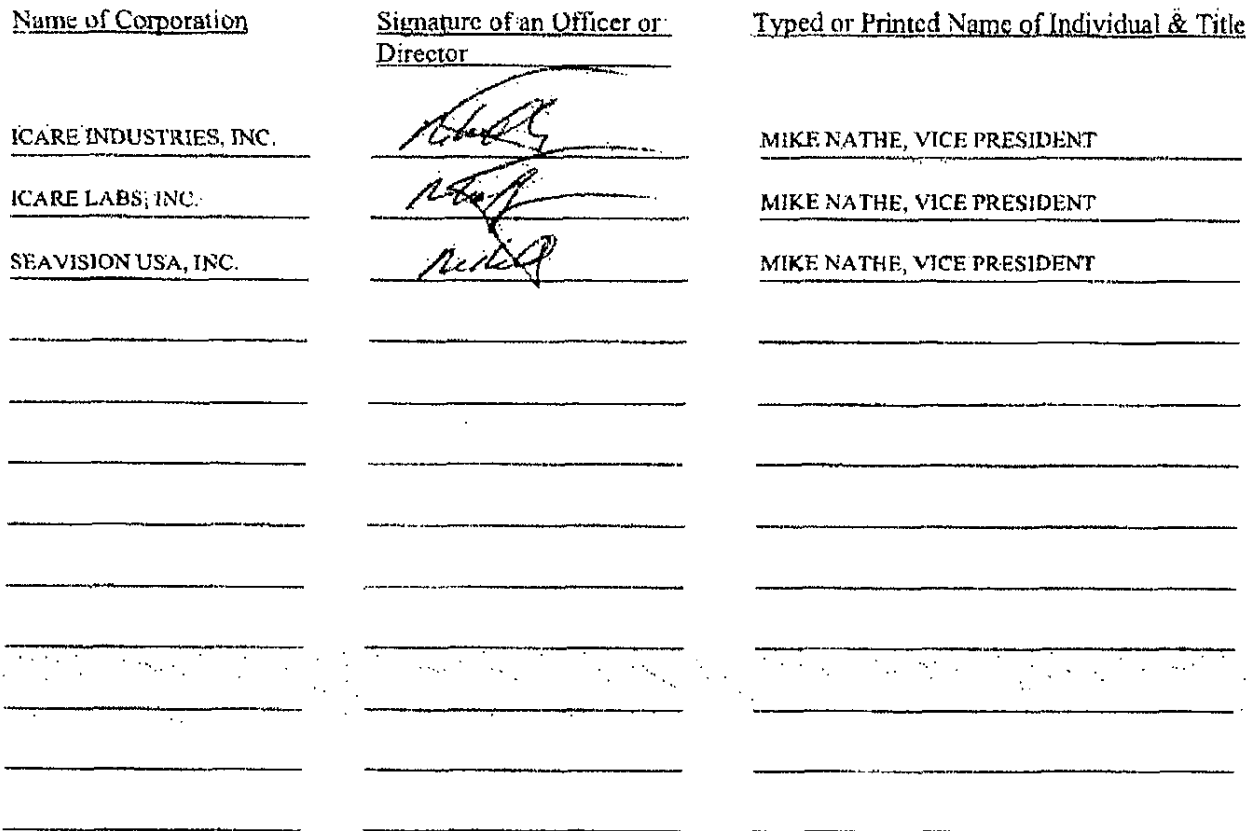 Name of Corporation
Signature of an Officer or
Director
Typed or Printed Name of Individual & Title
ICARE INDUSTRIES, INC.
MIKE NATHE, VICE PRESIDENT
ICARE LABS, INC.
MIKE NATHE, VICE PRESIDENT
SEAVISION USA, INC.
MIKE NATHE, VICE PRESIDENT